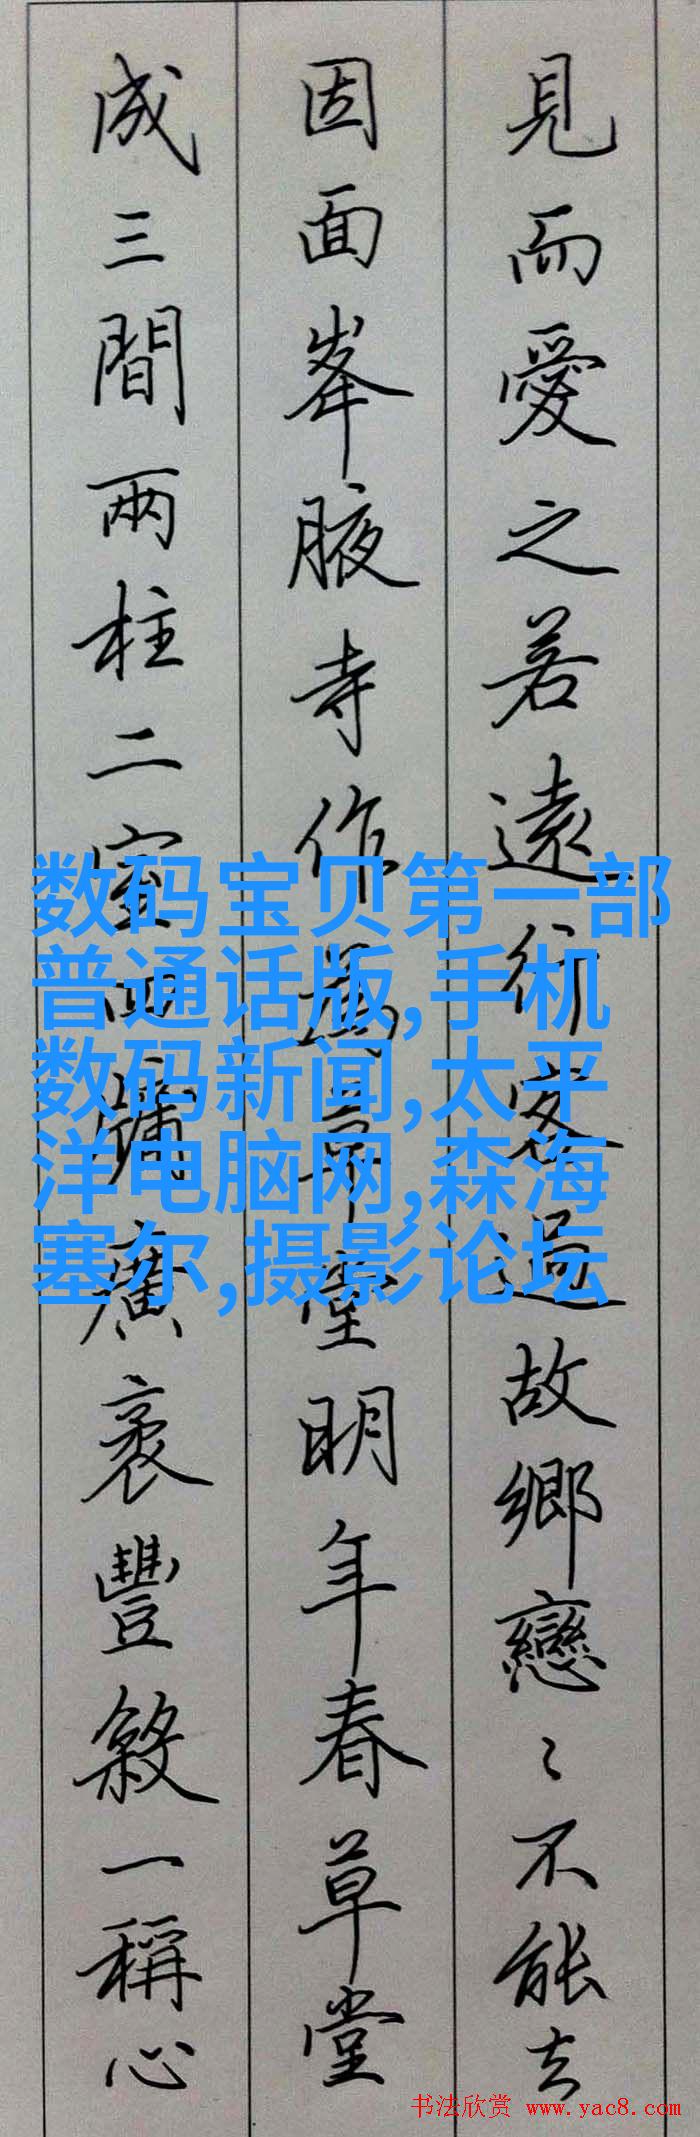 見而愛之若遠行客過故鄉戀〻不能去
因面峯腋寺作為草堂明年春草堂
成三間兩柱二室四牖廣袤豐殺一稱心
数码宝贝第一部
普通话版,手机
数码新闻,太平
洋电脑网,森海
塞尔,摄影论坛
书法欣赏 www.yac8.com